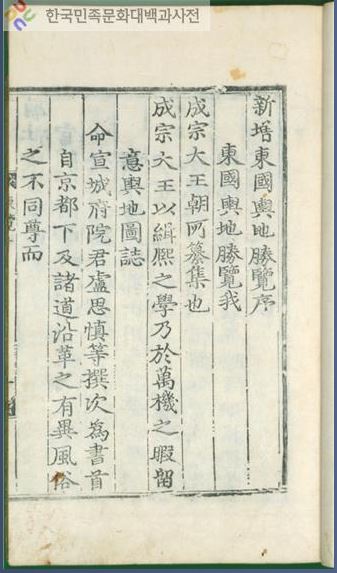 한국민족문화대백과사전
新增東國輿地勝覽序
東國輿地勝覽我
成宗大王朝所纂集也
成宗大王以緝熙之學乃於萬機之暇留
意輿地圖誌
命宣城府院君盧思愼等撰次爲書首
自京都下及諸道沿革之有異風俗
之不同尊而